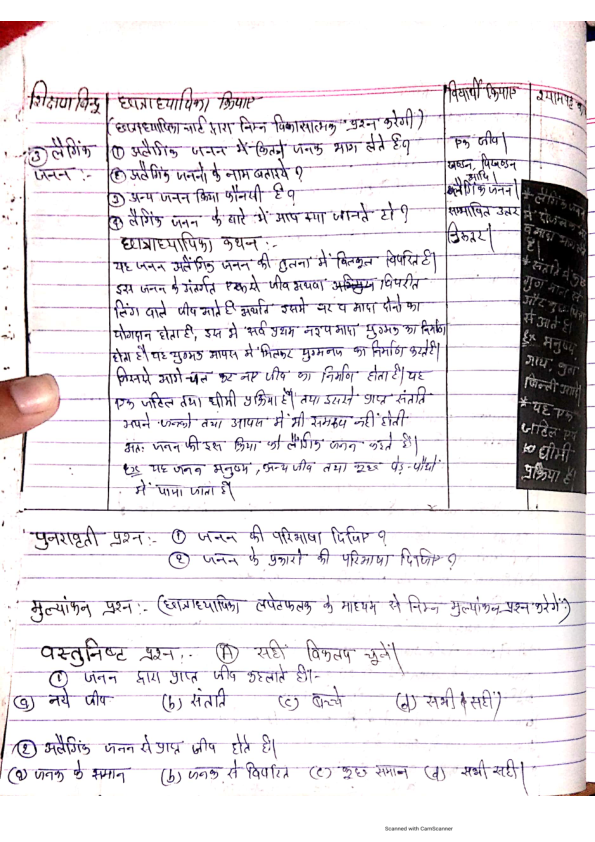 शिक्षण बिन्दु
छात्राध्यापिका क्रियाए
विद्यार्थी क्रियाए
(छात्राध्यापिका चार्ट द्वारा निम्न विकासात्मक प्रश्न करेगी)
③ लैगिंक जनन :-
① अलैगिंक जनन में कितने जनक भाग लेते है?
② अलैगिंक जननो के नाम बताइये ?
③ अन्य जनन क्रिया कौनसी है ?
④ लैगिंक जनन के बारे में आप क्या जानते हो ?
एक जीव।
खण्डन, विखण्डन आदि
लैगिंक जनन।
सम्भावित उत्तर
निरूत्तर।
छात्राध्यापिका कथन :-
यह जनन अलैगिंक जनन की तुलना में बिलकुल विपरित है।
इस जनन के अंतर्गत एक से जीव अथवा विपरीत
लिंग वाले जीव आते है अर्थात इसमे नर व मादा दोनो का
योगदान होता है, इस मे सर्व प्रथम नर व मादा युग्मक का निर्माण
होता है। यह युग्मक आपस में मिलकर युग्मनज का निर्माण करते है।
जिससे आगे चल कर नए जीव का निर्माण होता है। यह
एक जटिल तथा धीमी प्रक्रिया है। तथा इससे प्राप्त संतति
अपने जनको तथा आपस में भी समरूप नहीं होती
अतः जनन की इस क्रिया को लैगिंक जनन कहते है।
Ex यह जनन मनुष्य, अन्य जीव तथा कुछ पेड़-पौधों
में पाया जाता है।
* लैगिंक जनन
में दो जनक नर
व मादा भाग लेते
है।
* संतति में कुछ
गुण माता
और कुछ पिता
से आते है।
Ex मनुष्य,
गाय, कुत्ता
बिल्ली आदि।
* यह एक
जटिल एवं
धीमी
प्रक्रिया है।
पुनरावृती प्रश्न :- ① जनन की परिभाषा दिजिए ?
② जनन के प्रकारो की परिभाषा दिजिए ?
मुल्यांकन प्रश्न :- (छात्राध्यापिका लपेटफलक के माध्यम से निम्न मुल्यांकन प्रश्न करेगे)
वस्तुनिष्ट प्रश्न :- Ⓐ सही विकल्प चुनें।
① जनन द्वारा प्राप्त जीव कहलाते है।-
(a) नये जीव (b) संतति (c) बच्चे (d) सभी (सही)
② अलैगिंक जनन से प्राप्त जीव होते है।
(a) जनक के समान (b) जनक से विपरित (c) कुछ समान (d) सभी सही।
Scanned with CamScanner